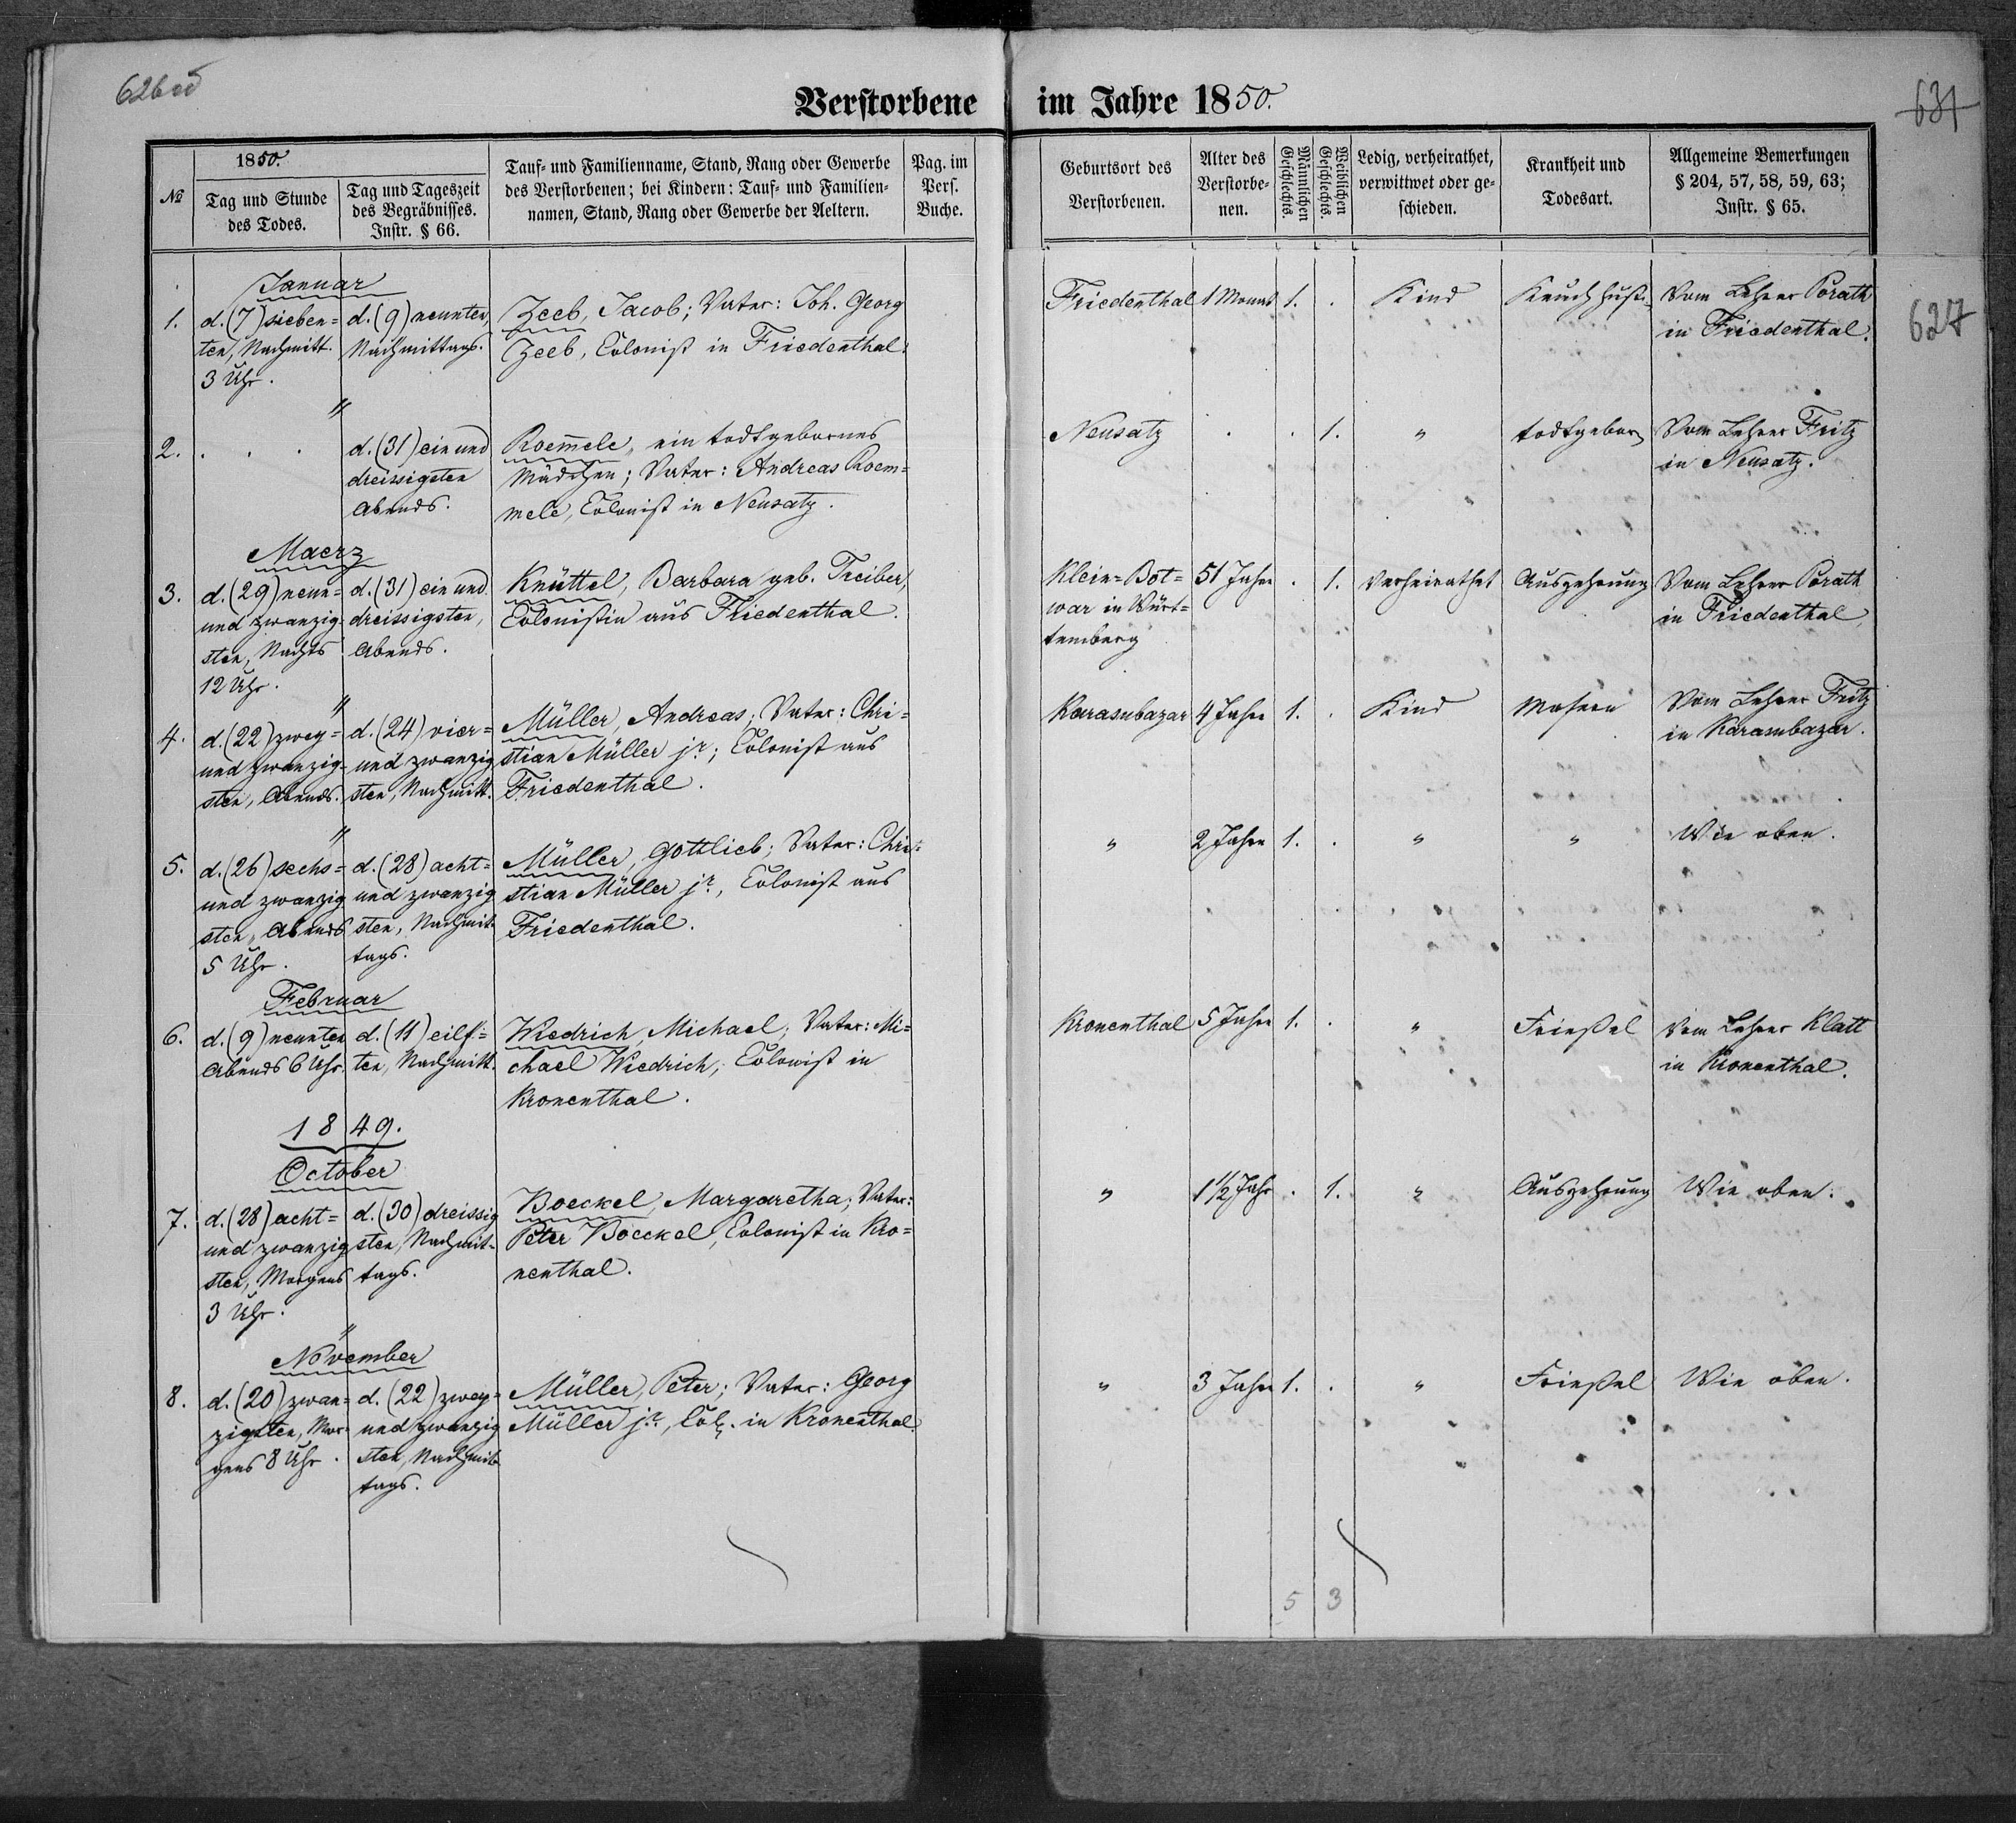 626 od
Verstorbene im Jahre 1850.
631
627
№
1850.
Tag und Stunde
des Todes.
Tag und Tageszeit
des Begräbnisses.
Instr. § 66.
Tauf- und Familienname, Stand, Rang oder Gewerbe
des Verstorbenen; bei Kindern: Tauf- und Familien-
namen, Stand, Rang oder Gewerbe der Aeltern.
Pag. im
Pers.
Buche.
Geburtsort des
Verstorbenen.
Alter des
Verstorbe-
nen.
Männlichen
Geschlechtes.
Weiblichen
Geschlechtes.
Ledig, verheirathet,
verwittwet oder ge-
schieden.
Krankheit und
Todesart.
Allgemeine Bemerkungen
§ 204, 57, 58, 59, 63;
Instr. § 65.
Januar
1.
d. (7) sieben=
ten, Nachmitt.
3 Uhr.
d. (9) neunten,
Nachmittags.
Zeeb, Jacob; Vater: Joh. Georg
Zeeb, Colonist in Friedenthal.
Friedenthal
1 Monat
1.
.
Kind
Keuchhust.
Vom Lehrer Porath
in Friedenthal.
"
2.
. . .
d. (31) ein und
dreissigsten
Abends.
Roemele, ein todtgebornes
Mädchen; Vater: Andreas Roem=
mele, Colonist in Neusatz.
Neusatz
.
.
1.
"
todtgebor.
Vom Lehrer Fritz
in Neusatz.
Maerz
3.
d. (29) neun=
und zwanzig-
sten, Nachts
12 Uhr.
d. (31) ein und
dreissigsten,
Abends.
Knüttel, Barbara geb. Treiber,
Colonistin aus Friedenthal.
Klein=Bot=
war in Würt=
temberg
51 Jahre
.
1.
Verheirathet
Auszehrung
Vom Lehrer Porath
in Friedenthal
"
4.
d. (22) zwey=
und zwanzig-
sten, Abends.
d. (24) vier=
und zwanzig
sten, Nachmitt.
Müller, Andreas; Vater: Chri=
stian Müller jr.; Colonist aus
Friedenthal.
Karasubazar
4 Jahre
1.
.
Kind
Masern
Vom Lehrer Fritz
in Karasubazar.
"
5.
d. (26) sechs=
und zwanzig
sten, Abends
5 Uhr.
d. (28) acht=
und zwanzig
sten, Nachmit-
tags.
Müller, Gottlieb; Vater: Chri=
stian Müller jr., Colonist aus
Friedenthal.
"
2 Jahre
1.
.
"
"
Wie oben.
Februar
6.
d. (9) neunten
Abends 6 Uhr.
d. (11) eilf=
ten, Nachmitt.
Wiedrich, Michael; Vater: Mi=
chael Wiedrich, Colonist in
Kronenthal.
Kronenthal
5 Jahre
1.
.
"
Frießel
Vom Lehrer Klatt
in Kronenthal.
1849.
October
7.
d. (28) acht=
und zwanzig
sten, Morgens
3 Uhr.
d. (30) dreissig
sten, Nachmit-
tags.
Boeckel, Margaretha; Vater:
Peter Boeckel, Colonist in Kro=
nenthal.
"
1 1/2 Jahr
.
1.
"
Auszehrung
Wie oben.
"
November
8.
d. (20) zwan=
zigsten, Mor-
gens 8 Uhr.
d. (22) zwey=
und zwanzig
sten, Nachmit-
tags.
Müller, Peter; Vater: Georg
Müller jr., Col. in Kronenthal.
"
3 Jahre
1.
.
"
Frießel
Wie oben.
5
3